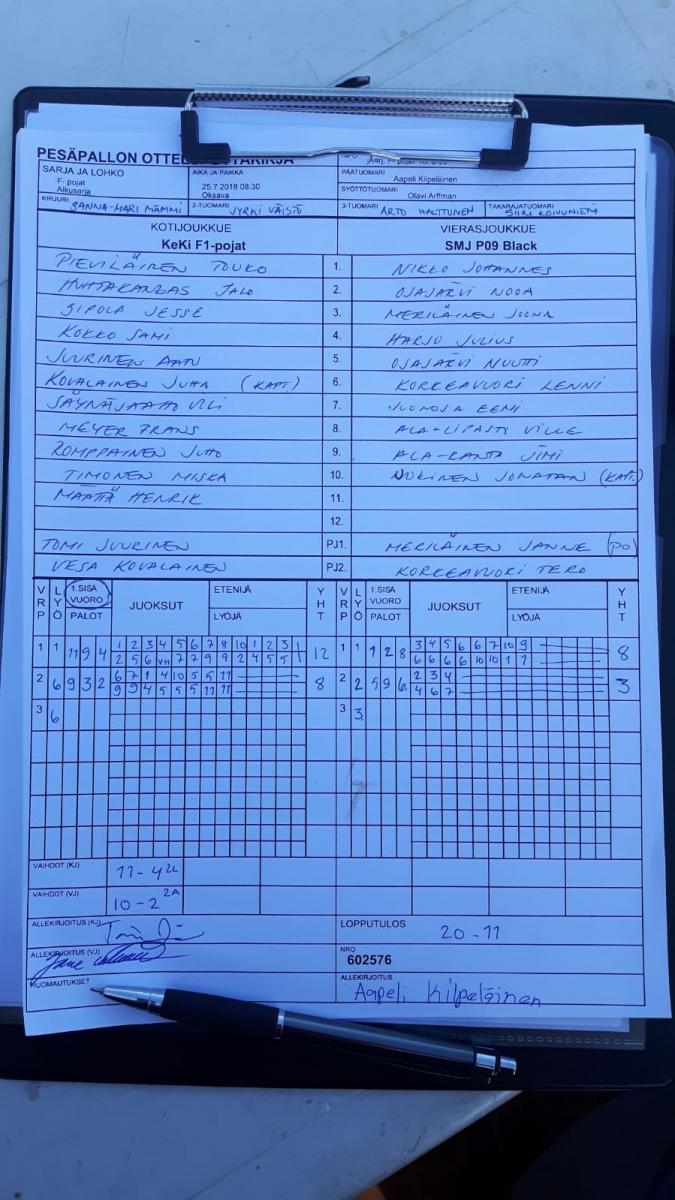 PESÄPALLON
SARJA JA LOHKO
F- pojat
Alkusarja
AIKA JA PAIKKA
25.7.2018 08:30
Oksava
PÄÄTUOMARI
Aapeli Kilpeläinen
SYÖTTÖTUOMARI
Olavi Arffman
KIRJURI SANNA-MARI MÄMMI
2-TUOMARI JYRKI VÄISTÖ
3-TUOMARI ARTO HALTTUNEN
TAKARAJATUOMARI SIIRI KOIVUNIEMI
KOTIJOUKKUE
KeKi F1-pojat
VIERASJOUKKUE
SMJ P09 Black
PIEVILÄINEN TOUKO 1. NIKKO JOHANNES
HUHTAKANGAS JALO 2. OJAJÄRVI NOOA
SIPOLA JESSE 3. MERILÄINEN JOONA
KOKKO SAMI 4. HARJU JULIUS
JUURINEN AATU 5. OJAJÄRVI NUUTTI
KOVALAINEN JUHA (KAPT.) 6. KORKEAVUORI LENNI
7. EEMI
MEYER FRANS 8. ALA-LIPASTI VILLE
ROMPPAINEN JUHO 9. ALA-RANTA JIMI
TIMONEN MISKA 10. JONATAN (KAPT.)
MÄÄTTÄ HENRIK 11.
12.
TOMI JUURINEN PJ1. MERILÄINEN JANNE (PO)
VESA KOVALAINEN PJ2. KORKEAVUORI TERO
VRP LYÖ 1.SISÄ VUORO PALOT JUOKSUT ETENIJÄ LYÖJÄ YHT VRP LYÖ 1.SISÄ VUORO PALOT JUOKSUT ETENIJÄ LYÖJÄ YHT
1 1 11 9 4 1 2 3 4 5 6 7 8 10 1 2 3 12 1 1 1 2 8 3 4 5 6 6 7 10 9 8
2 5 6 VH 7 7 9 9 2 4 5 5 6 6 6 6 10 10 1 1
2 6 9 3 2 6 7 1 4 10 5 5 11 8 2 2 5 9 6 2 3 4 3
9 9 4 5 5 5 11 11 4 6 7
3 6 3 3
VAIHDOT (KJ) 11-4 2L
VAIHDOT (VJ) 10-2 2A
ALLEKIRJOITUS (KJ)
LOPPUTULOS 20-11
ALLEKIRJOITUS (VJ)
NRO
602576
HUOMAUTUKSET
ALLEKIRJOITUS
Aapeli Kilpeläinen